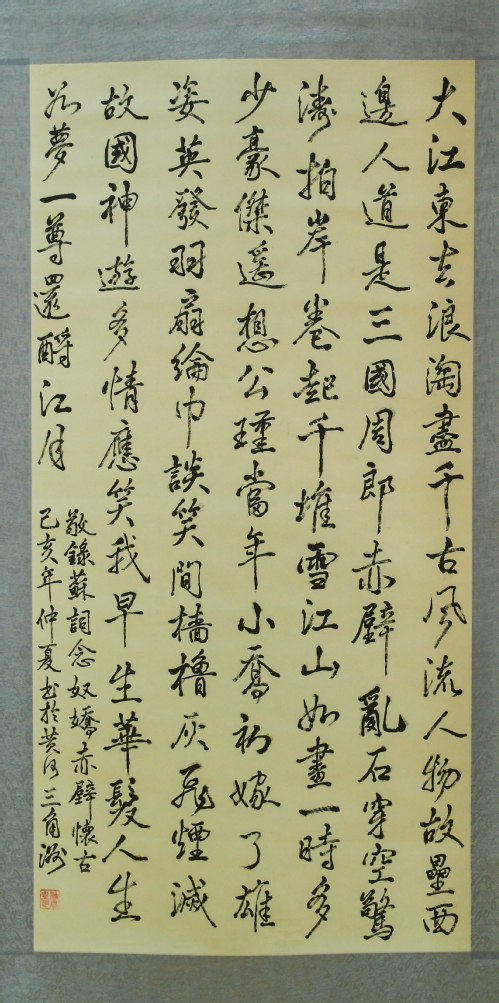 大江東去浪淘盡千古風流人物故壘西
邊人道是三國周郎赤壁亂石穿空驚
濤拍岸卷起千堆雪江山如畫一時多
少豪傑遥想公瑾當年小喬初嫁了雄
姿英發羽扇綸巾談笑間檣櫓灰飛煙滅
故國神遊多情應笑我早生華髮人生
如夢一尊還酹江月
敬錄蘇詞念奴嬌赤壁懷古
己亥年仲夏书於黄河三角洲